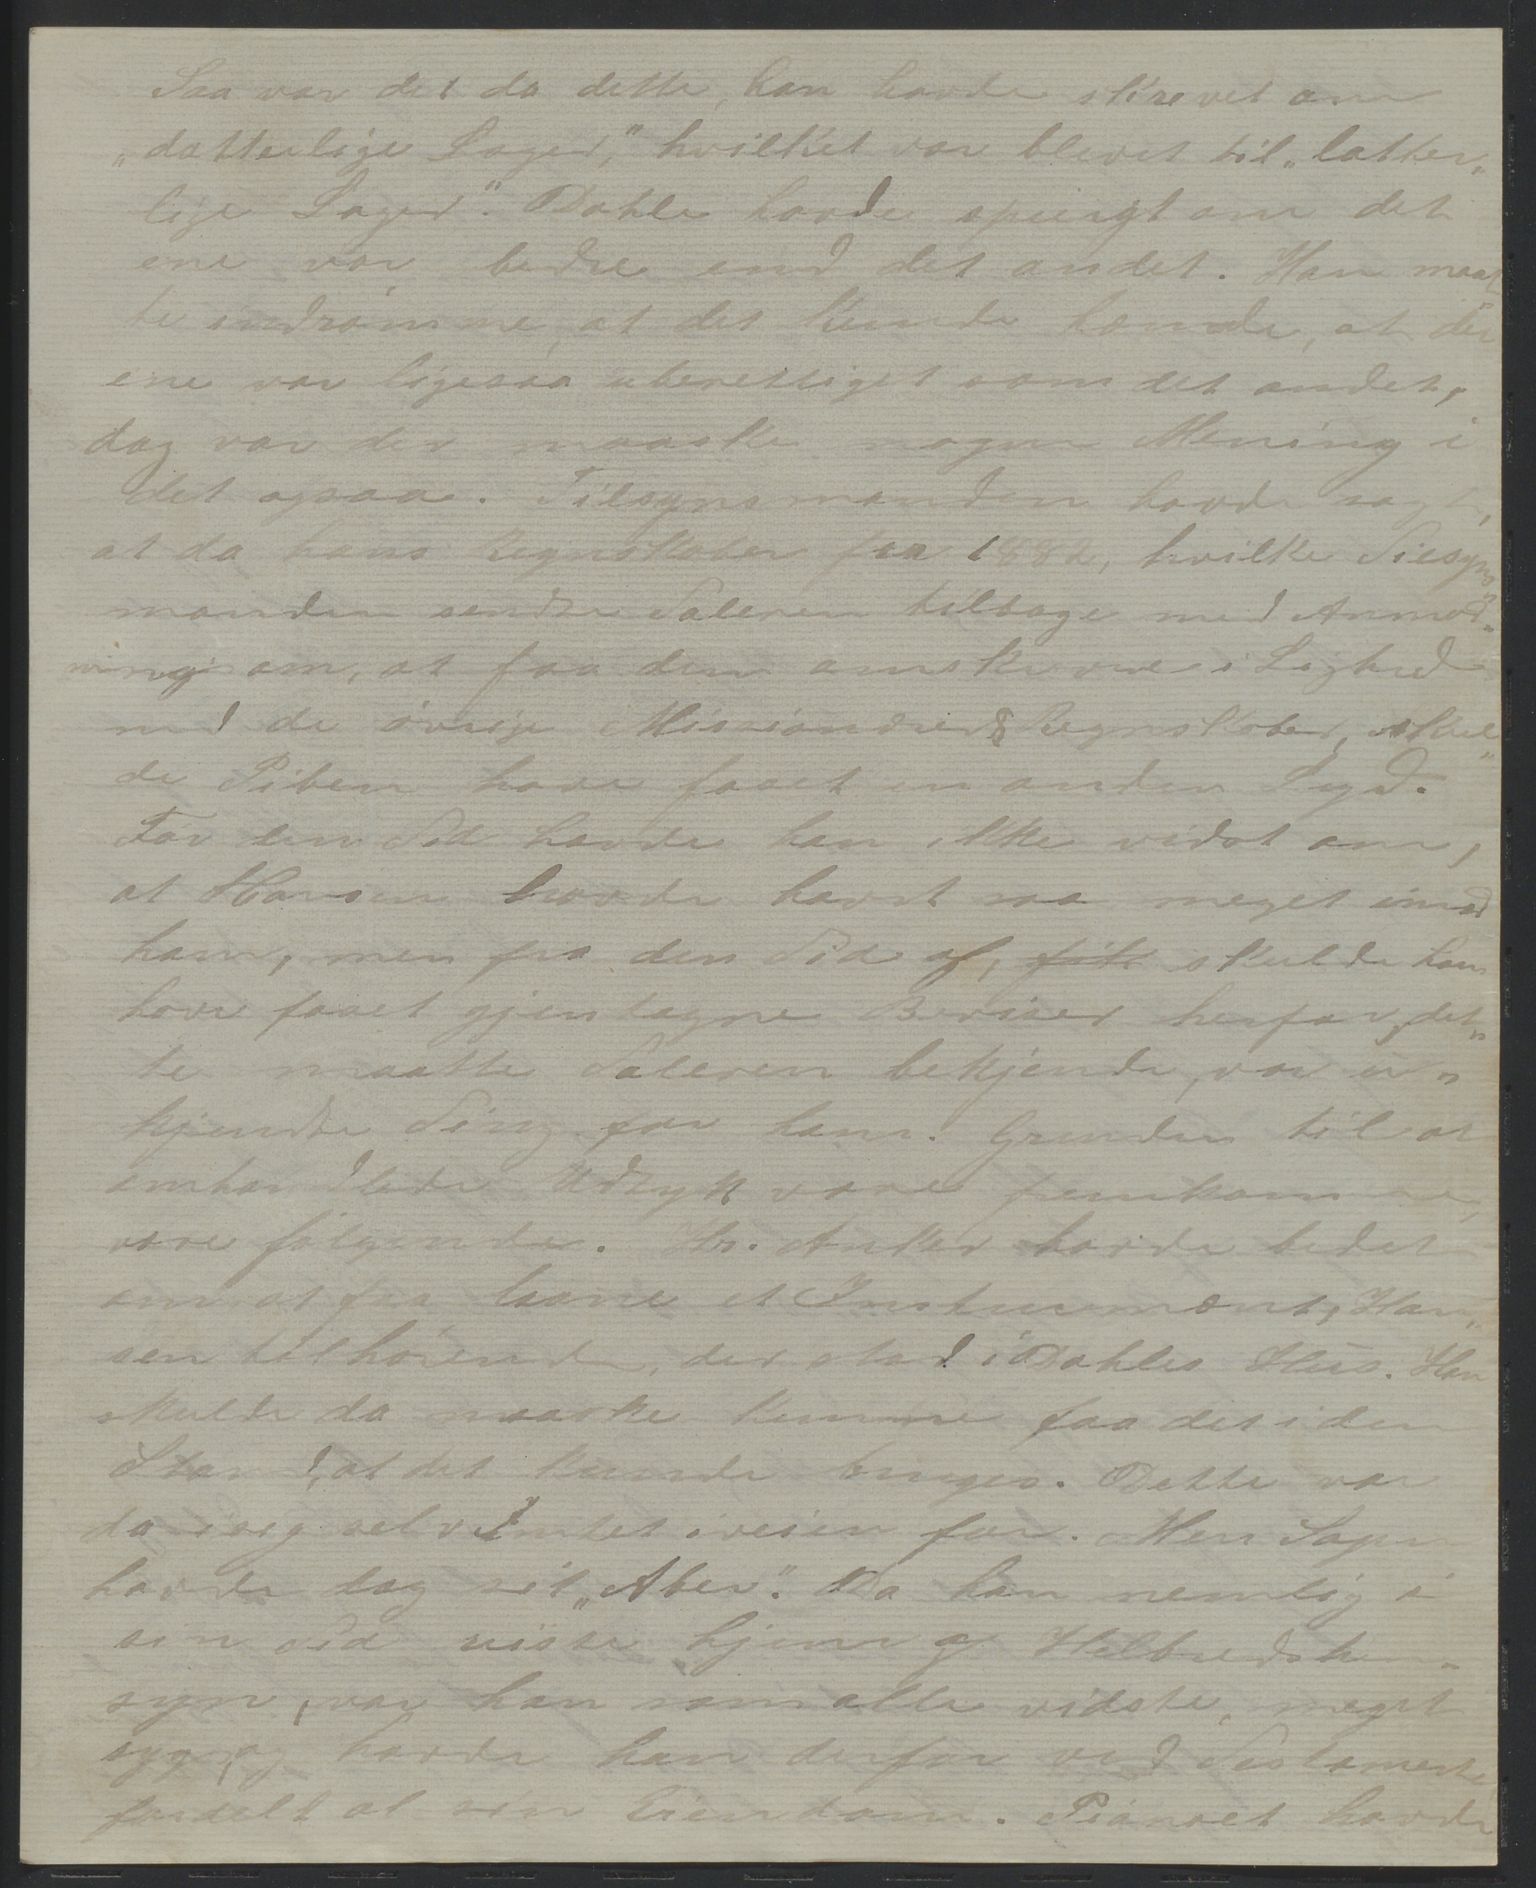 Saa var det da dette, han havde skrevet om
„datterlige Sager," hvilket var blevet til „latter„
lige Sager". Dahle havde spurgt om det
ene var bedre end det andet. Han maat„
te indrømme, at det kunde hænde, at det
ene var ligesaa uberettiget som det andet,
dog var der maaske nogen Mening i
det ogsaa. Tilsynsmanden havde sagt,
at da hans Regnskaber fra 1882, hvilke Tilsyns„
manden sendte Taleren tilbage med Anmod„
ning om, at faa dem omskrevne i Lighed
med de øvrige Missionærers Regnskaber, skul„
de Piben have faaet en anden Lyd.
Før den Tid havde han ikke vidst om,
at Hansen havde havt saa meget imod
ham, men fra den Tid af, fik skulde han
have faaet gjentagne Beviser herfor, det„
te maatte Taleren bekjende, var u„
kjendte Ting for ham. Grunden til at
omhandlede Udtryk vare fremkomne,
vare følgende. Hr. Anker havde bedet
om at faa laane et Instrument, Han„
sen tilhørende, der stod i Dahles Hus. Han
skulde da maaske kunne faa det i den
Stand, at det kunde bruges. Dette var
da i sig selv Intet iveien for. Men Sagen
havde dog sit „Aber". Da han nemlig i
sin Tid reiste hjem af Helbredshen„
syn, var han som alle vidste, meget
syg, og havde han derfor ved Testamente
fordelt al sin Eiendom. Pianoet havde